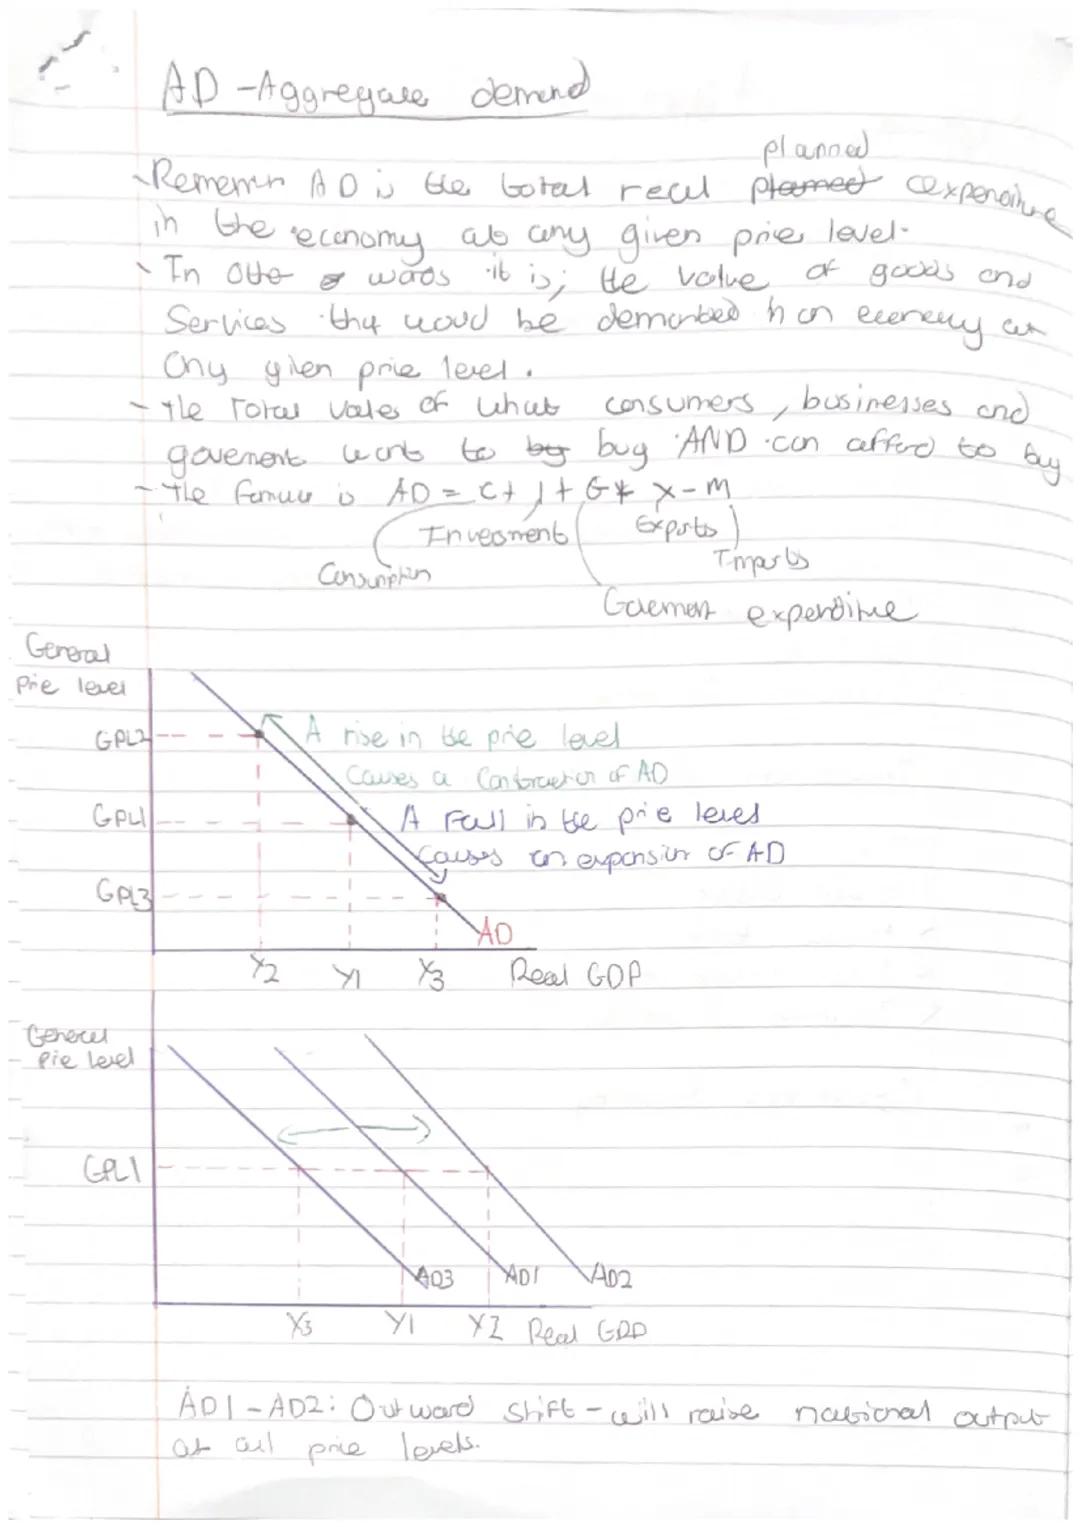 AD - Aggregate demand
planned
- Rememr AD is the total real planned expenditure
in the economy at any given price level.
- In other words it is; the value of goods and
Services that would be demanded in an economy at
any given price level.
- The Total value of what consumers, businesses and
goverment want to by buy AND can afford to buy
- The formula is AD = C + I + G + X - M
Investment Exports
Consumption Imports
Goverment expenditure
General
Price level
GPL2 A rise in the price level
causes a contraction of AD
GPL1 A Fall in the price level
causes an expansion of AD
GPL3
AD
Y2 Y1 Y3 Real GDP
General
Price level
GPL1
AD3 AD1 AD2
Y3 Y1 Y2 Real GDP
AD1 - AD2: Outward shift - will raise national output
at all price levels.